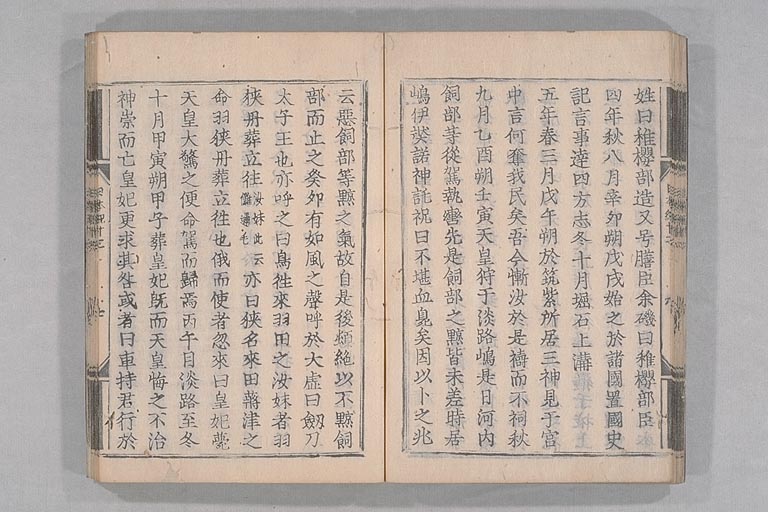 姓曰稚櫻部造又号膳臣余磯曰稚櫻部臣
四年秋八月辛卯朔戊戌始之於諸國置國史
記言事達四方志冬十月堀石上溝
五年春三月戊午朔於筑紫所居三神見于宮
中言何奪我民矣吾今慚汝於是禱而不祠秋
九月乙酉朔壬寅天皇狩于淡路嶋是日河内
飼部等從駕執轡先是飼部之黥皆未差時居
嶋伊奘諾神託祝曰不堪血臭矣因以卜之兆
云惡飼部等黥之氣故自是後頓絶以不黥飼
部而止之癸卯有如風之聲呼於大虛曰劔刀
太子王也亦呼之曰鳥往來羽田之汝妹者羽
狹丹葬立往汝妹此云儺邇毛亦曰狹名來田蔣津之
命羽狹丹葬立往也俄而使者忽來曰皇妃薨
天皇大驚之便命駕而歸焉丙午自淡路至冬
十月甲寅朔甲子葬皇妃既而天皇悔之不治
神崇而亡皇妃更求其咎或者曰車持君行於